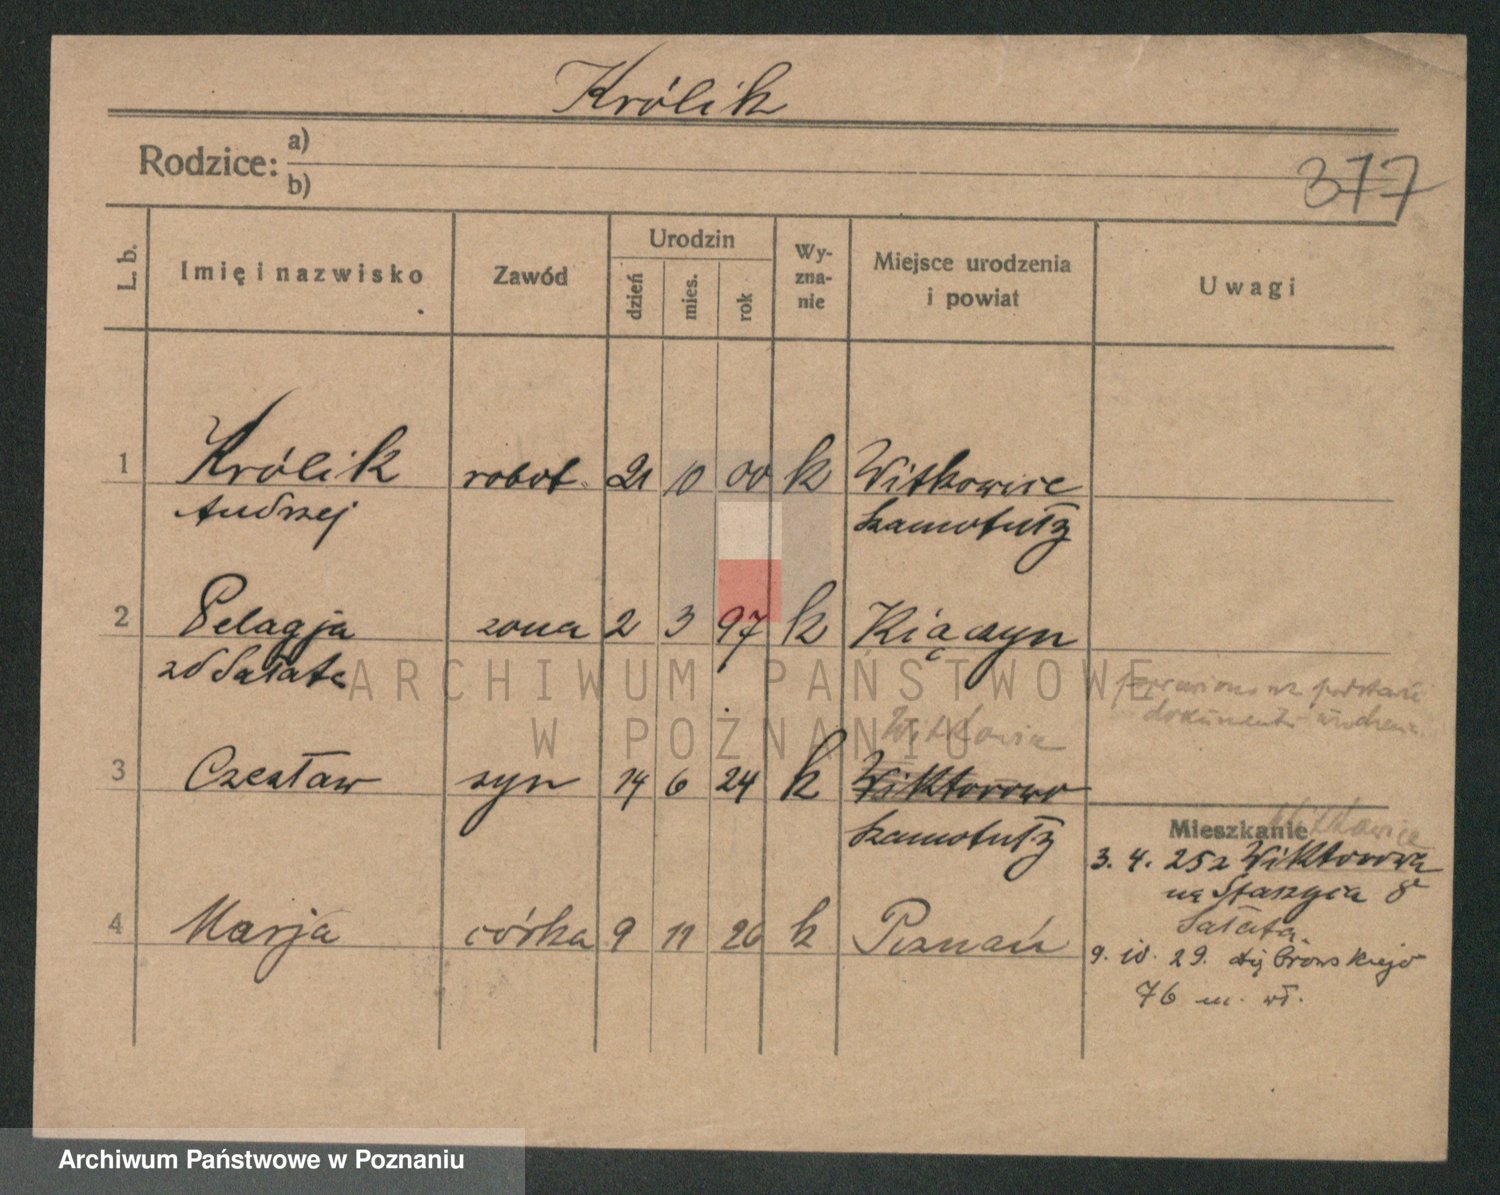 Królik
Rodzice: a)
b)
377
L. b. Imię i nazwisko Zawód Urodzin dzień mies. rok Wy-zna-nie Miejsce urodzenia i powiat Uwagi
1 Królik robot. 21 10 00 k Witkowice
Andrzej Szamotuły
2 Pelagja żona 2 3 97 k Kiączyn
zd Sałata
poprawiono na podstawie
dokumentu urodzenia
Witkowice
3 Czesław syn 14 6 24 k Wiktorowo
Szamotuły
Mieszkanie Witkowice
3. 4. 25 z Wiktorowa
na Staszyca 8
Sałata
4 Marja córka 9 11 26 k Poznań
9. 10. 29. Dąbrowskiego
76 m. wł.
ARCHIWUM PAŃSTWOWE
W POZNANIU
Archiwum Państwowe w Poznaniu